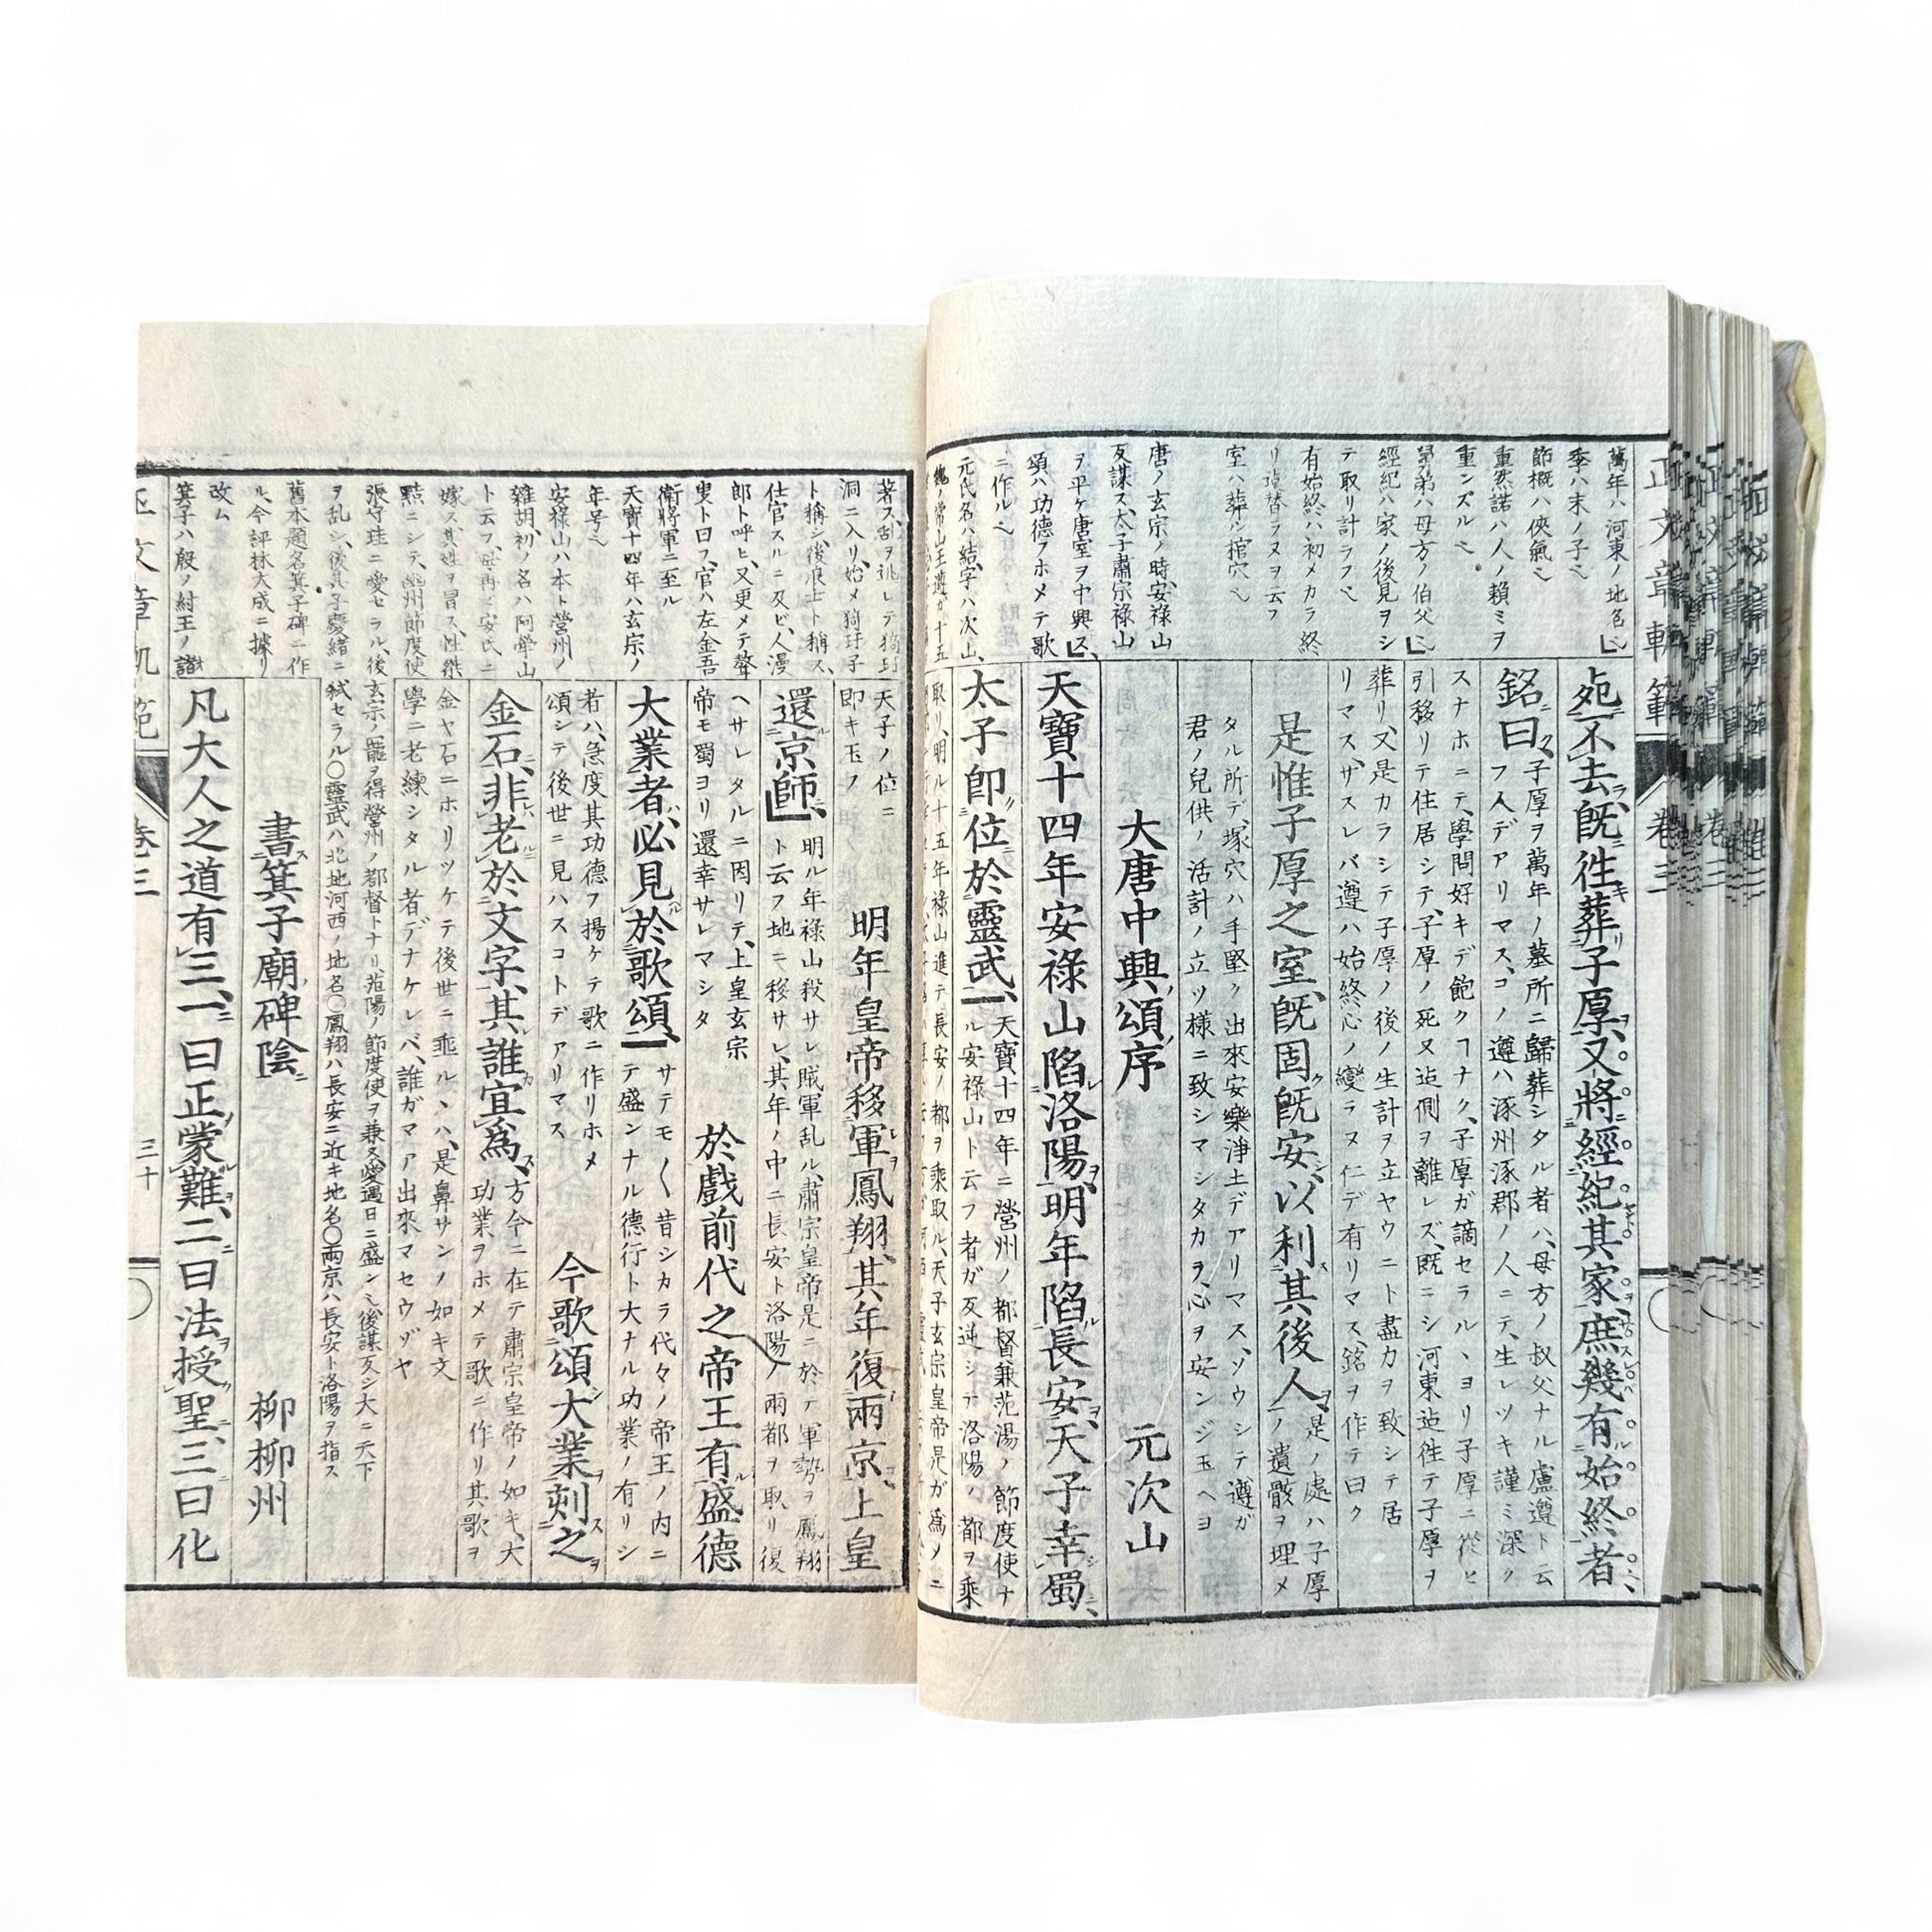 正文章軌範
卷三
萬年ハ河東ノ地名
季ハ末ノ子
節概ハ侠氣
重然諾ハ人ノ頼ミヲ
重ンズル
弟ハ母方ノ伯父
經紀ハ家ノ後見ヲシ
テ取リ計ラフ
有始終ハ初メカラ終
リ迠替ラヌヲ云フ
室ハ葬シ棺穴
唐ノ玄宗ノ時安祿山
反謀ス、太子肅宗祿山
ヲ平ケ唐室ヲ中興ス、
頌ハ功德ヲホメテ歌
ニ作ル
元氏名ハ結、字ハ次山、
魏ノ常山王遵ガ十五
不去既徃葬子厚、又將經紀其家、庶幾有始終者、
銘曰、
子厚ヲ萬年ノ墓所ニ歸葬シタル者ハ、母方ノ叔父ナル盧遵ト云
フ人デアリマス、コノ遵ハ涿州涿郡ノ人ニテ、生レツキ謹ミ深ク
スナホニテ、學問好キデ飽クナク、子厚ガ謫セラル、ヨリ子厚ニ從ヒ
引移リテ住居シテ、子厚ノ死又迠側ヲ離レズ、既ニシ河東迠徃テ子厚ヲ
葬リ、又是カラシテ子厚ノ後ノ生計ヲ立ヤウニト盡力ヲ致シテ居
リマス、ザスレバ遵ハ始終心ノ變ラヌ仁デ有リマス、銘ヲ作テ曰ク
是惟子厚之室、既固既安、以利其後人、
是ノ處ハ子厚
ノ遺骸ヲ埋メ
タル所デ、塚穴ハ手堅ク出來安樂淨土デアリマス、ソウシテ遵ガ
君ノ兒供ノ活計ノ立ツ様ニ致シマシタカラ、心ヲ安ンジ玉ヘヨ
大唐中興頌序 元次山
天寶十四年安祿山陷洛陽、明年陷長安、天子幸蜀、
太子卽位於靈武、
天寶十四年ニ營州ノ都督兼范湯ノ節度使ナ
ル安祿山ト云フ者ガ反逆シテ洛陽ノ都ヲ乘
取リ、明ル十五年祿山進テ長安ノ都ヲ乘取ル、天子玄宗皇帝是ガ爲メニ
著ス、乱ヲ逃レテ猗玗
洞ニ入リ、始メ猗玗子
ト稱シ、後浪士ト稱ス、
仕官スルニ及ビ、人漫
郎ト呼ヒ、又更メテ聱
叟ト曰フ、官ハ左金吾
衛將軍ニ至ル
天寶十四年ハ玄宗ノ
年号
安祿山ハ本ト營州ノ
雜胡、初ノ名ハ阿犖山
ト云フ、母再ヒ安氏ニ
嫁ス、其姓ヲ冒ス、性桀
黠ニシテ、幽州節度使
張守珪ニ愛セラル、後
ヲ乱シ、後其子慶緒ニ
舊本題名箕子碑ニ作
ル、今評林大成ニ據リ
改ム
箕子ハ殷ノ紂王ノ諸
天子ノ位ニ
即キ玉フ
明年皇帝移軍鳳翔、其年復兩京、上皇
還京師、
明ル年祿山殺サレ賊軍乱ル、肅宗皇帝是ニ於テ軍勢ヲ鳳翔
ト云フ地ニ移サレ、其年ノ中ニ長安ト洛陽ノ兩都ヲ取リ復
ヘサレタルニ因リテ、上皇玄宗
帝モ蜀ヨリ還幸サレマシタ
於戲前代之帝王有盛德
大業者、必見於歌頌、
サテモ〱昔シカラ代々ノ帝王ノ内ニ
テ盛ンナル德行ト大ナル功業ノ有リシ
者ハ、急度其功德フ揚ケテ歌ニ作リホメ
頌シテ後世ニ見ハスコトデアリマス
今歌頌大業、刻之
金石、非老於文字、其誰宜爲、
方今ニ在テ肅宗皇帝ノ如キ、大
功業ヲホメテ歌ニ作リ其歌ヲ
金ヤ石ニホリツケテ後世ニ垂ル、ハ、是鼻サンノ如キ文
學ニ老練シタル者デナケレバ、誰ガマア出來マセウゾヤ
玄宗ノ寵ヲ得營州ノ都督トナリ范陽ノ節度使ヲ兼ス、愛遇日ニ盛ン、後謀反シ大ニ天下
弑セラル〇靈武ハ北地河西ノ地名〇鳳翔ハ長安ニ近キ地名〇兩京ハ長安ト洛陽ヲ指ス
書箕子廟碑陰 柳柳州
凡大人之道有三、一曰正蒙難、二曰法授聖、三曰化
正文章軌範
卷三
三十